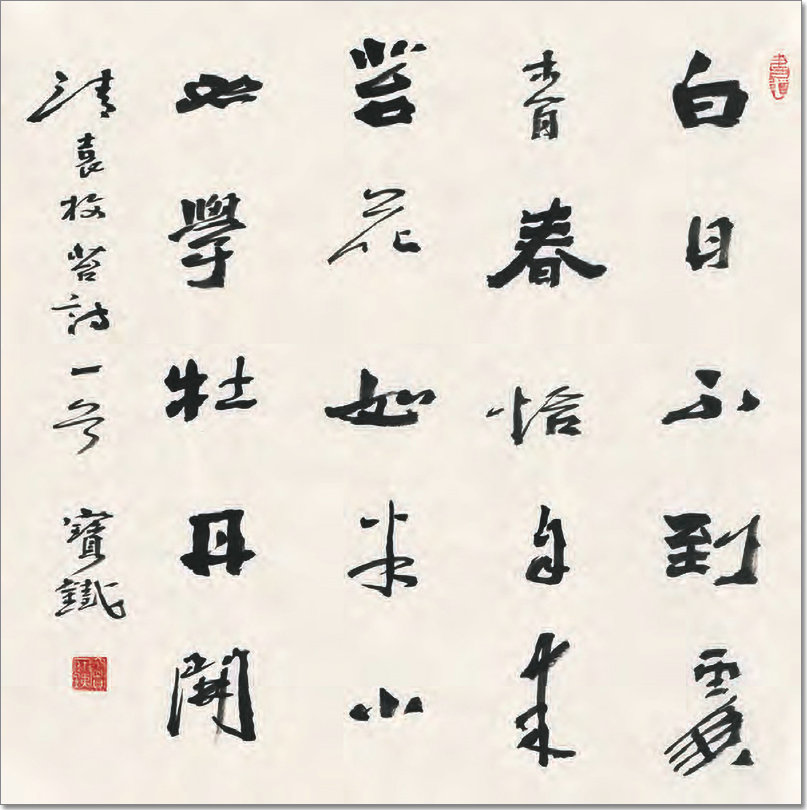 白日不到處
青春恰自来
苔花如米小
也學牡丹開
清袁枚苔詩一首 寶鐵